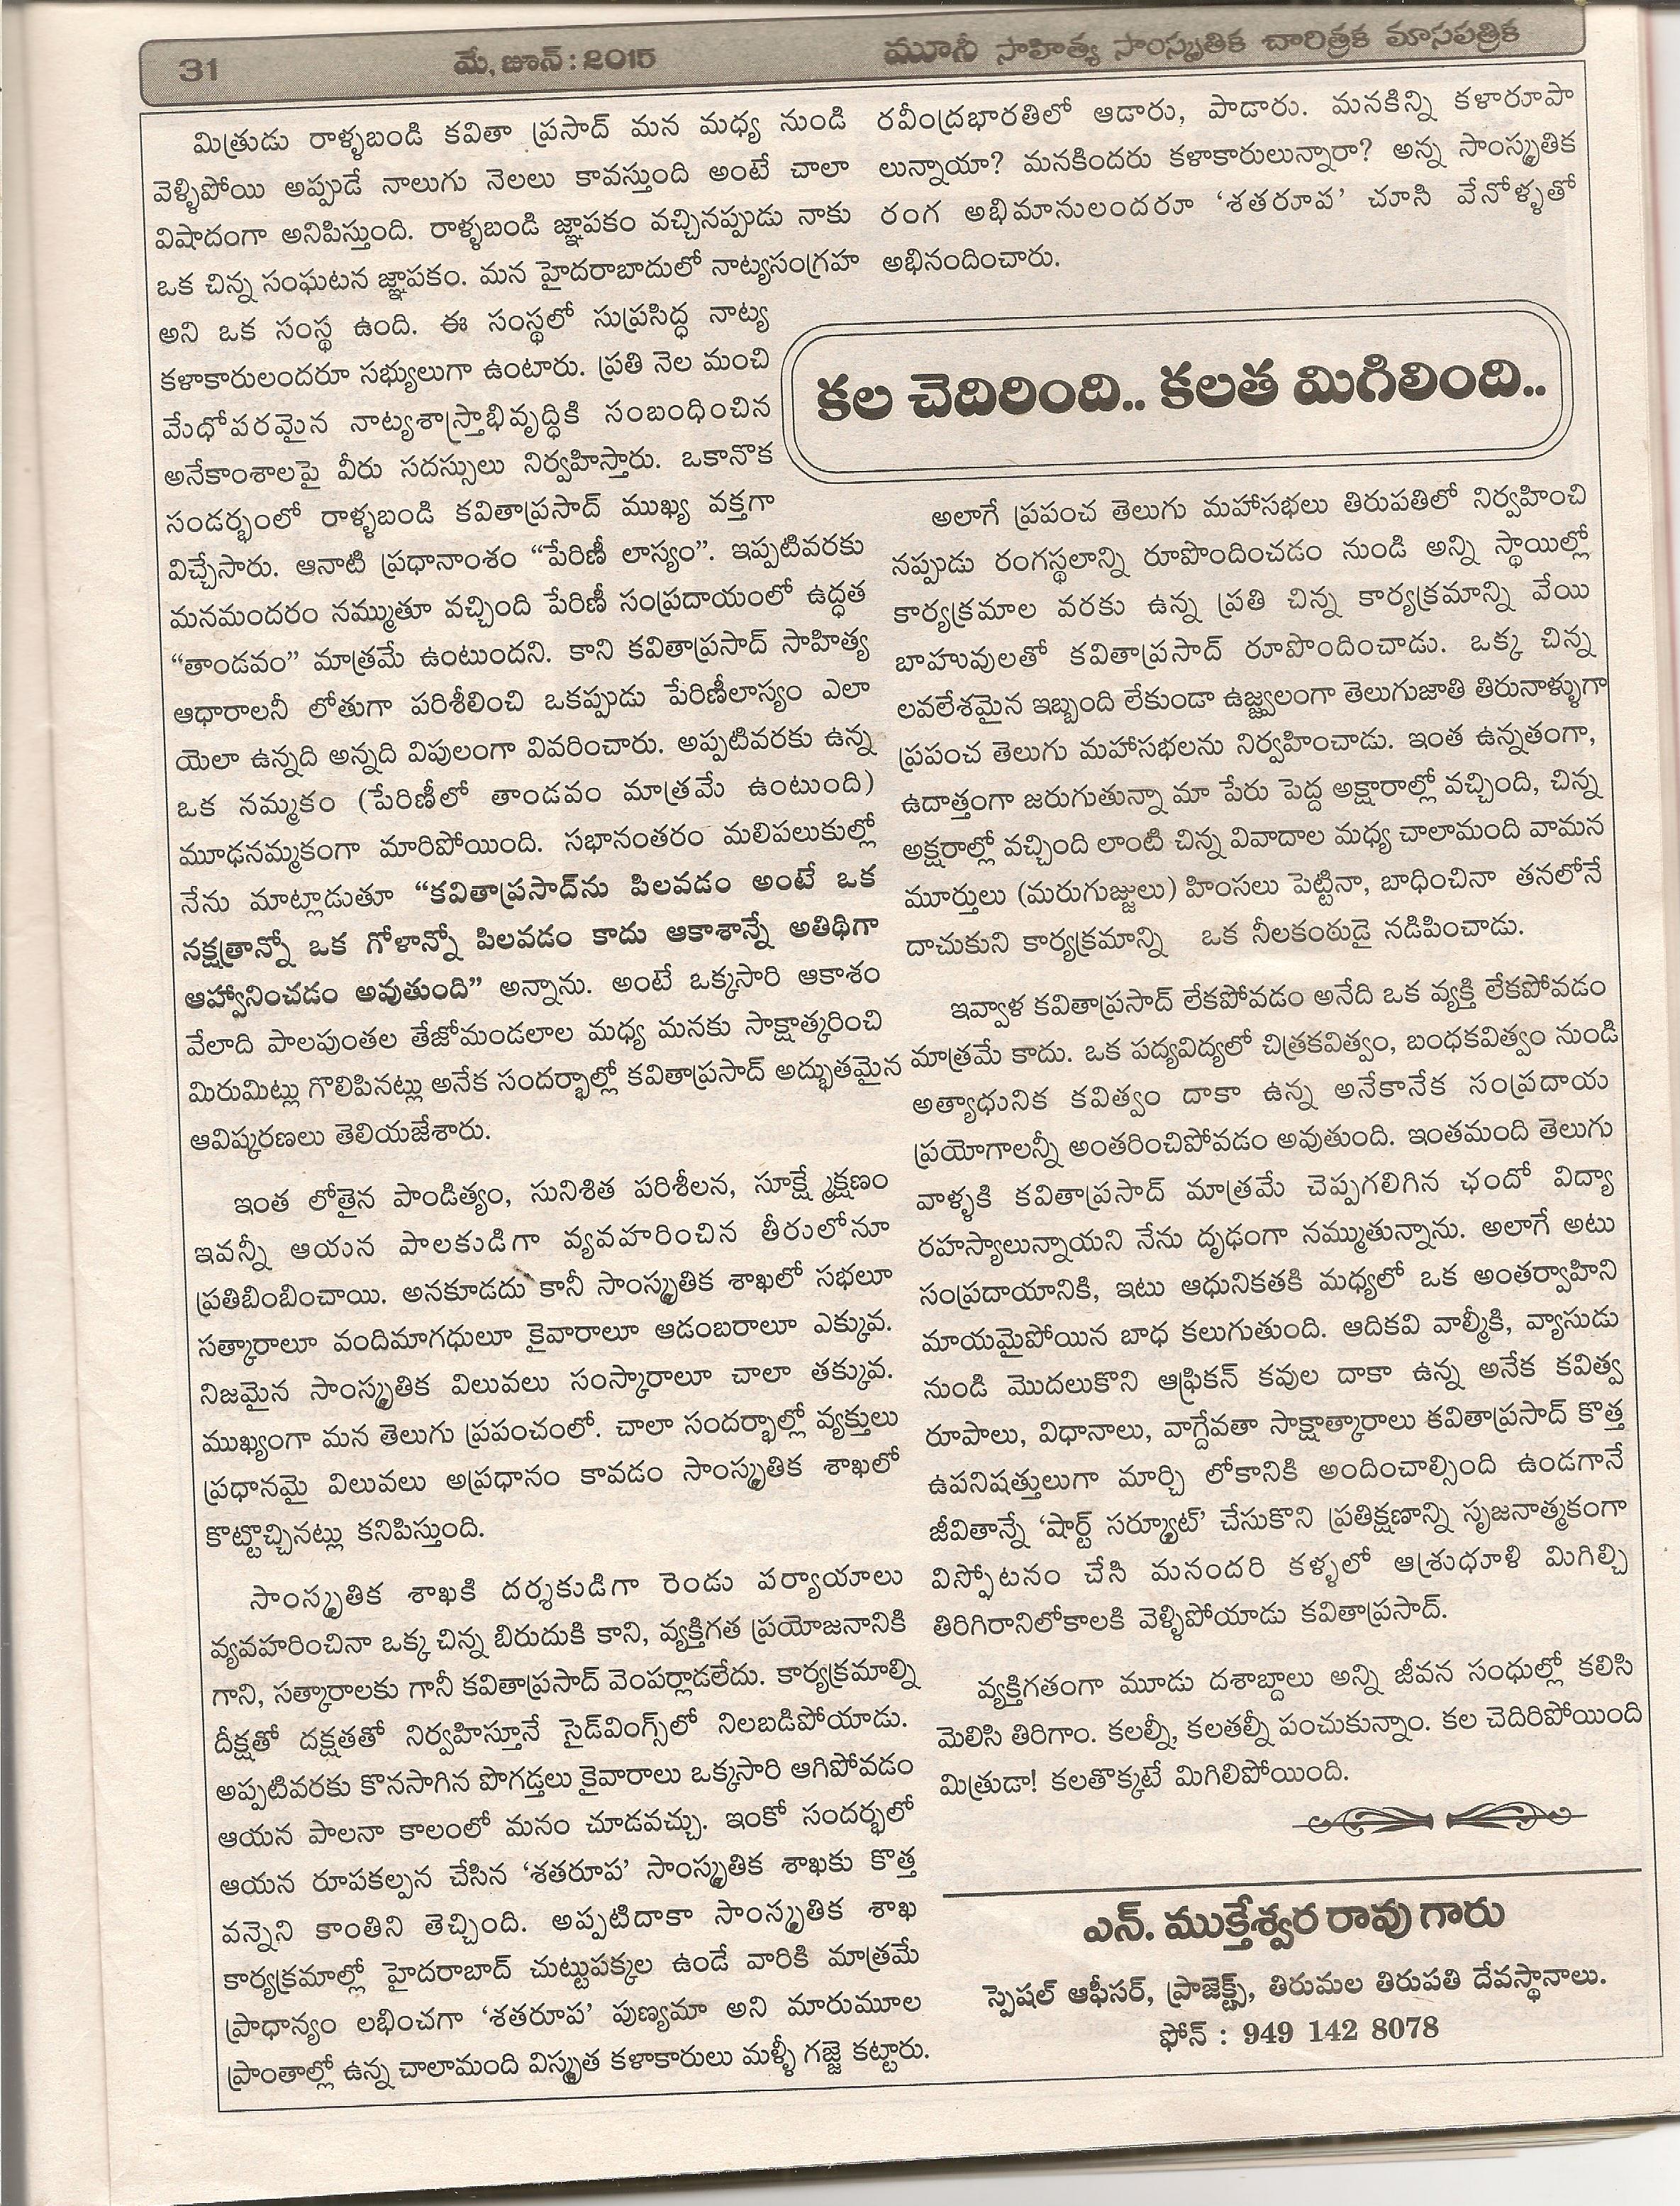 31
మే, జూన్ : 2015
మూసీ సాహిత్య సాంస్కృతిక చారిత్రక మాసపత్రిక
మిత్రుడు రాళ్ళబండి కవితా ప్రసాద్ మన మధ్య నుండి
వెళ్ళిపోయి అప్పుడే నాలుగు నెలలు కావస్తుంది అంటే చాలా
విషాదంగా అనిపిస్తుంది. రాళ్ళబండి జ్ఞాపకం వచ్చినప్పుడు నాకు
ఒక చిన్న సంఘటన జ్ఞాపకం. మన హైదరాబాదులో నాట్యసంగ్రహ
అని ఒక సంస్థ ఉంది. ఈ సంస్థలో సుప్రసిద్ధ నాట్య
కళాకారులందరూ సభ్యులుగా ఉంటారు. ప్రతి నెల మంచి
మేధోపరమైన నాట్యశాస్త్రాభివృద్ధికి సంబంధించిన
అనేకాంశాలపై వీరు సదస్సులు నిర్వహిస్తారు. ఒకానొక
సందర్భంలో రాళ్ళబండి కవితాప్రసాద్ ముఖ్య వక్తగా
విచ్చేసారు. ఆనాటి ప్రధానాంశం “పేరిణీ లాస్యం”. ఇప్పటివరకు
మనమందరం నమ్ముతూ వచ్చింది పేరిణీ సంప్రదాయంలో ఉద్ధత
“తాండవం” మాత్రమే ఉంటుందని. కాని కవితాప్రసాద్ సాహిత్య
ఆధారాలనీ లోతుగా పరిశీలించి ఒకప్పుడు పేరిణీలాస్యం ఎలా
యెలా ఉన్నది అన్నది విపులంగా వివరించారు. అప్పటివరకు ఉన్న
ఒక నమ్మకం (పేరిణీలో తాండవం మాత్రమే ఉంటుంది)
మూఢనమ్మకంగా మారిపోయింది. సభానంతరం మలిపలుకుల్లో
నేను మాట్లాడుతూ “కవితాప్రసాద్‌ను పిలవడం అంటే ఒక
నక్షత్రాన్నో ఒక గోళాన్నో పిలవడం కాదు ఆకాశాన్నే అతిథిగా
ఆహ్వానించడం అవుతుంది” అన్నాను. అంటే ఒక్కసారి ఆకాశం
వేలాది పాలపుంతల తేజోమండలాల మధ్య మనకు సాక్షాత్కరించి
మిరుమిట్లు గొలిపినట్లు అనేక సందర్భాల్లో కవితాప్రసాద్ అద్భుతమైన
ఆవిష్కరణలు తెలియజేశారు.
ఇంత లోతైన పాండిత్యం, సునిశిత పరిశీలన, సూక్ష్మేక్షణం
ఇవన్నీ ఆయన పాలకుడిగా వ్యవహరించిన తీరులోనూ
ప్రతిబింబించాయి. అనకూడదు కానీ సాంస్కృతిక శాఖలో సభలూ
సత్కారాలూ వందిమాగధులూ కైవారాలూ ఆడంబరాలూ ఎక్కువ.
నిజమైన సాంస్కృతిక విలువలు సంస్కారాలూ చాలా తక్కువ.
ముఖ్యంగా మన తెలుగు ప్రపంచంలో. చాలా సందర్భాల్లో వ్యక్తులు
ప్రధానమై విలువలు అప్రధానం కావడం సాంస్కృతిక శాఖలో
కొట్టొచ్చినట్లు కనిపిస్తుంది.
సాంస్కృతిక శాఖకి దర్శకుడిగా రెండు పర్యాయాలు
వ్యవహరించినా ఒక్క చిన్న బిరుదుకి కాని, వ్యక్తిగత ప్రయోజనానికి
గాని, సత్కారాలకు గానీ కవితాప్రసాద్ వెంపర్లాడలేదు. కార్యక్రమాల్ని
దీక్షతో దక్షతతో నిర్వహిస్తూనే సైడ్‌వింగ్స్‌లో నిలబడిపోయాడు.
అప్పటివరకు కొనసాగిన పొగడ్తలు కైవారాలు ఒక్కసారి ఆగిపోవడం
ఆయన పాలనా కాలంలో మనం చూడవచ్చు. ఇంకో సందర్భలో
ఆయన రూపకల్పన చేసిన ‘శతరూప’ సాంస్కృతిక శాఖకు కొత్త
వన్నెని కాంతిని తెచ్చింది. అప్పటిదాకా సాంస్కృతిక శాఖ
కార్యక్రమాల్లో హైదరాబాద్ చుట్టుపక్కల ఉండే వారికి మాత్రమే
ప్రాధాన్యం లభించగా ‘శతరూప’ పుణ్యమా అని మారుమూల
ప్రాంతాల్లో ఉన్న చాలామంది విస్మృత కళాకారులు మళ్ళీ గజ్జె కట్టారు.
రవీంద్రభారతిలో ఆడారు, పాడారు. మనకిన్ని కళారూపా
లున్నాయా? మనకిందరు కళాకారులున్నారా? అన్న సాంస్కృతిక
రంగ అభిమానులందరూ ‘శతరూప’ చూసి వేనోళ్ళతో
అభినందించారు.
కల చెదిరింది.. కలత మిగిలింది..
అలాగే ప్రపంచ తెలుగు మహాసభలు తిరుపతిలో నిర్వహించి
నప్పుడు రంగస్థలాన్ని రూపొందించడం నుండి అన్ని స్థాయిల్లో
కార్యక్రమాల వరకు ఉన్న ప్రతి చిన్న కార్యక్రమాన్ని వేయి
బాహువులతో కవితాప్రసాద్ రూపొందించాడు. ఒక్క చిన్న
లవలేశమైన ఇబ్బంది లేకుండా ఉజ్జ్వలంగా తెలుగుజాతి తిరునాళ్ళుగా
ప్రపంచ తెలుగు మహాసభలను నిర్వహించాడు. ఇంత ఉన్నతంగా,
ఉదాత్తంగా జరుగుతున్నా మా పేరు పెద్ద అక్షారాల్లో వచ్చింది, చిన్న
అక్షరాల్లో వచ్చింది లాంటి చిన్న వివాదాల మధ్య చాలామంది వామన
మూర్తులు (మరుగుజ్జులు) హింసలు పెట్టినా, బాధించినా తనలోనే
దాచుకుని కార్యక్రమాన్ని ఒక నీలకంఠుడై నడిపించాడు.
ఇవ్వాళ కవితాప్రసాద్ లేకపోవడం అనేది ఒక వ్యక్తి లేకపోవడం
మాత్రమే కాదు. ఒక పద్యవిద్యలో చిత్రకవిత్వం, బంధకవిత్వం నుండి
అత్యాధునిక కవిత్వం దాకా ఉన్న అనేకానేక సంప్రదాయ
ప్రయోగాలన్నీ అంతరించిపోవడం అవుతుంది. ఇంతమంది తెలుగు
వాళ్ళకి కవితాప్రసాద్ మాత్రమే చెప్పగలిగిన ఛందో విద్యా
రహస్యాలున్నాయని నేను దృఢంగా నమ్ముతున్నాను. అలాగే అటు
సంప్రదాయానికి, ఇటు ఆధునికతకి మధ్యలో ఒక అంతర్వాహిని
మాయమైపోయిన బాధ కలుగుతుంది. ఆదికవి వాల్మీకి, వ్యాసుడు
నుండి మొదలుకొని ఆఫ్రికన్ కవుల దాకా ఉన్న అనేక కవిత్వ
రూపాలు, విధానాలు, వాగ్దేవతా సాక్షాత్కారాలు కవితాప్రసాద్ కొత్త
ఉపనిషత్తులుగా మార్చి లోకానికి అందించాల్సింది ఉండగానే
జీవితాన్నే ‘షార్ట్ సర్క్యూట్’ చేసుకొని ప్రతిక్షణాన్ని సృజనాత్మకంగా
విస్ఫోటనం చేసి మనందరి కళ్ళలో ఆశ్రుధూళి మిగిల్చి
తిరిగిరానిలోకాలకి వెళ్ళిపోయాడు కవితాప్రసాద్.
వ్యక్తిగతంగా మూడు దశాబ్దాలు అన్ని జీవన సంధుల్లో కలిసి
మెలిసి తిరిగాం. కలల్నీ, కలతల్నీ పంచుకున్నాం. కల చెదిరిపోయింది
మిత్రుడా! కలతొక్కటే మిగిలిపోయింది.
ఎన్. ముక్తేశ్వర రావు గారు
స్పెషల్ ఆఫీసర్, ప్రాజెక్ట్స్, తిరుమల తిరుపతి దేవస్థానాలు.
ఫోన్ : 949 142 8078